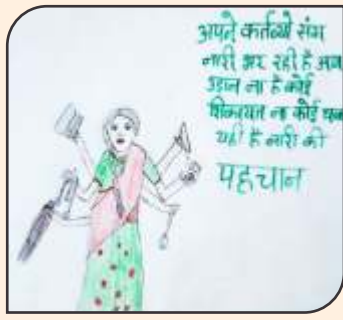 अपने कर्तव्यो संग
नारी भर रही है अब
उड़ान ना है कोई
शिकायत ना कोई थका
यही है नारी की
पहचान